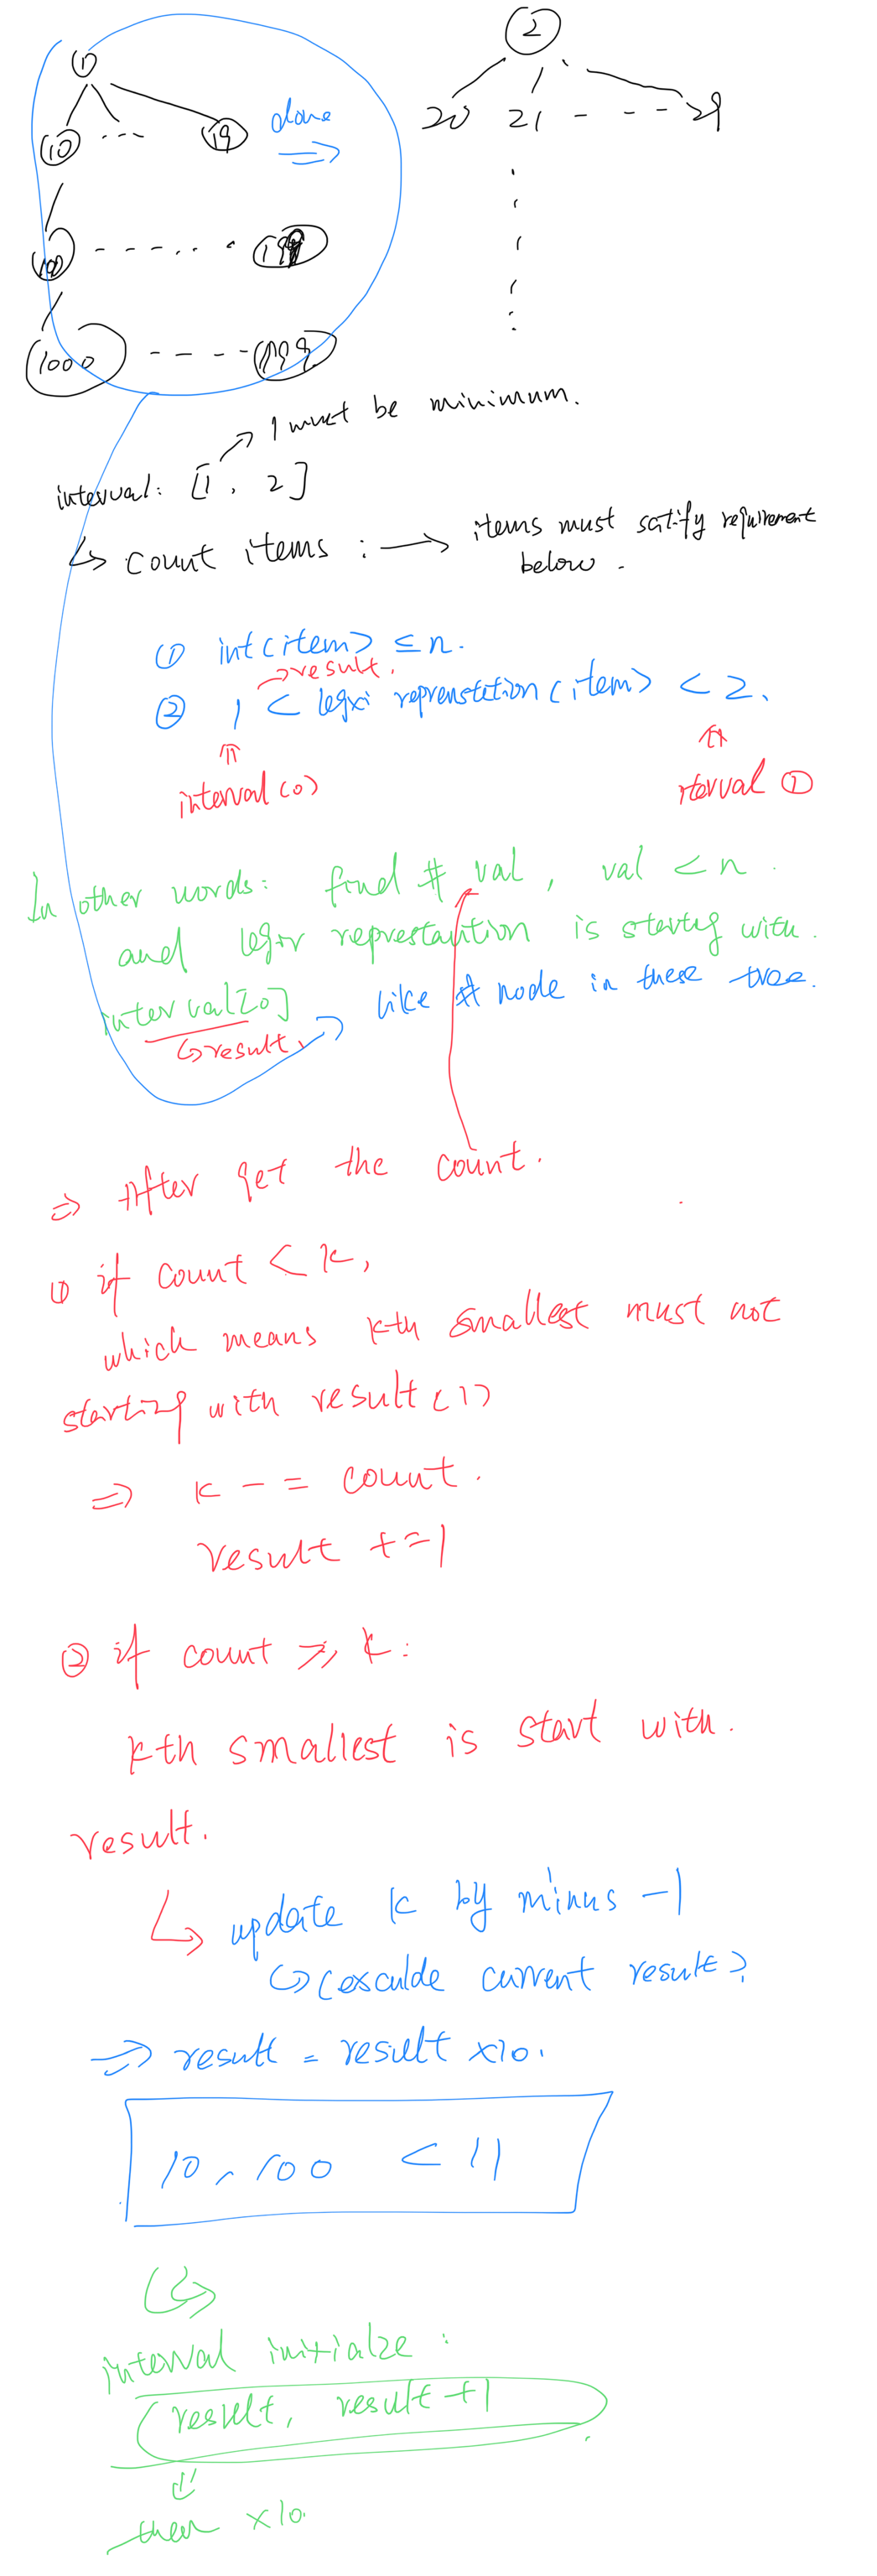 1
2
10 --- 19
done
⇒
20 21 - - - - 29
100 - - - . . . 199
1000 - - - - 1999
1 must be minimum.
interval: [1, 2]
↳ count items : → items must satify requirement
below.
① int(item) ≤ n.
→ result.
② 1 < reprenstation(item) < 2.
⇑ ⇑
interval(0) iterval ①
In other words: find # val, val < n.
and represtantion is starting with.
interval[0] → like # node in these tree.
↳ result.
⇒ After get the count.
① if count < k,
which means kth smallest must not
starting with result(1)
⇒ k -= count.
result +=1
② if count ≥ k:
kth smallest is start with.
result.
↳ update k by minus -1
↳ (exculde current result)
⇒ result = result ×10.
10, 100 < 11
↳
interval initialze :
(result, result +1
⇓
then ×10.